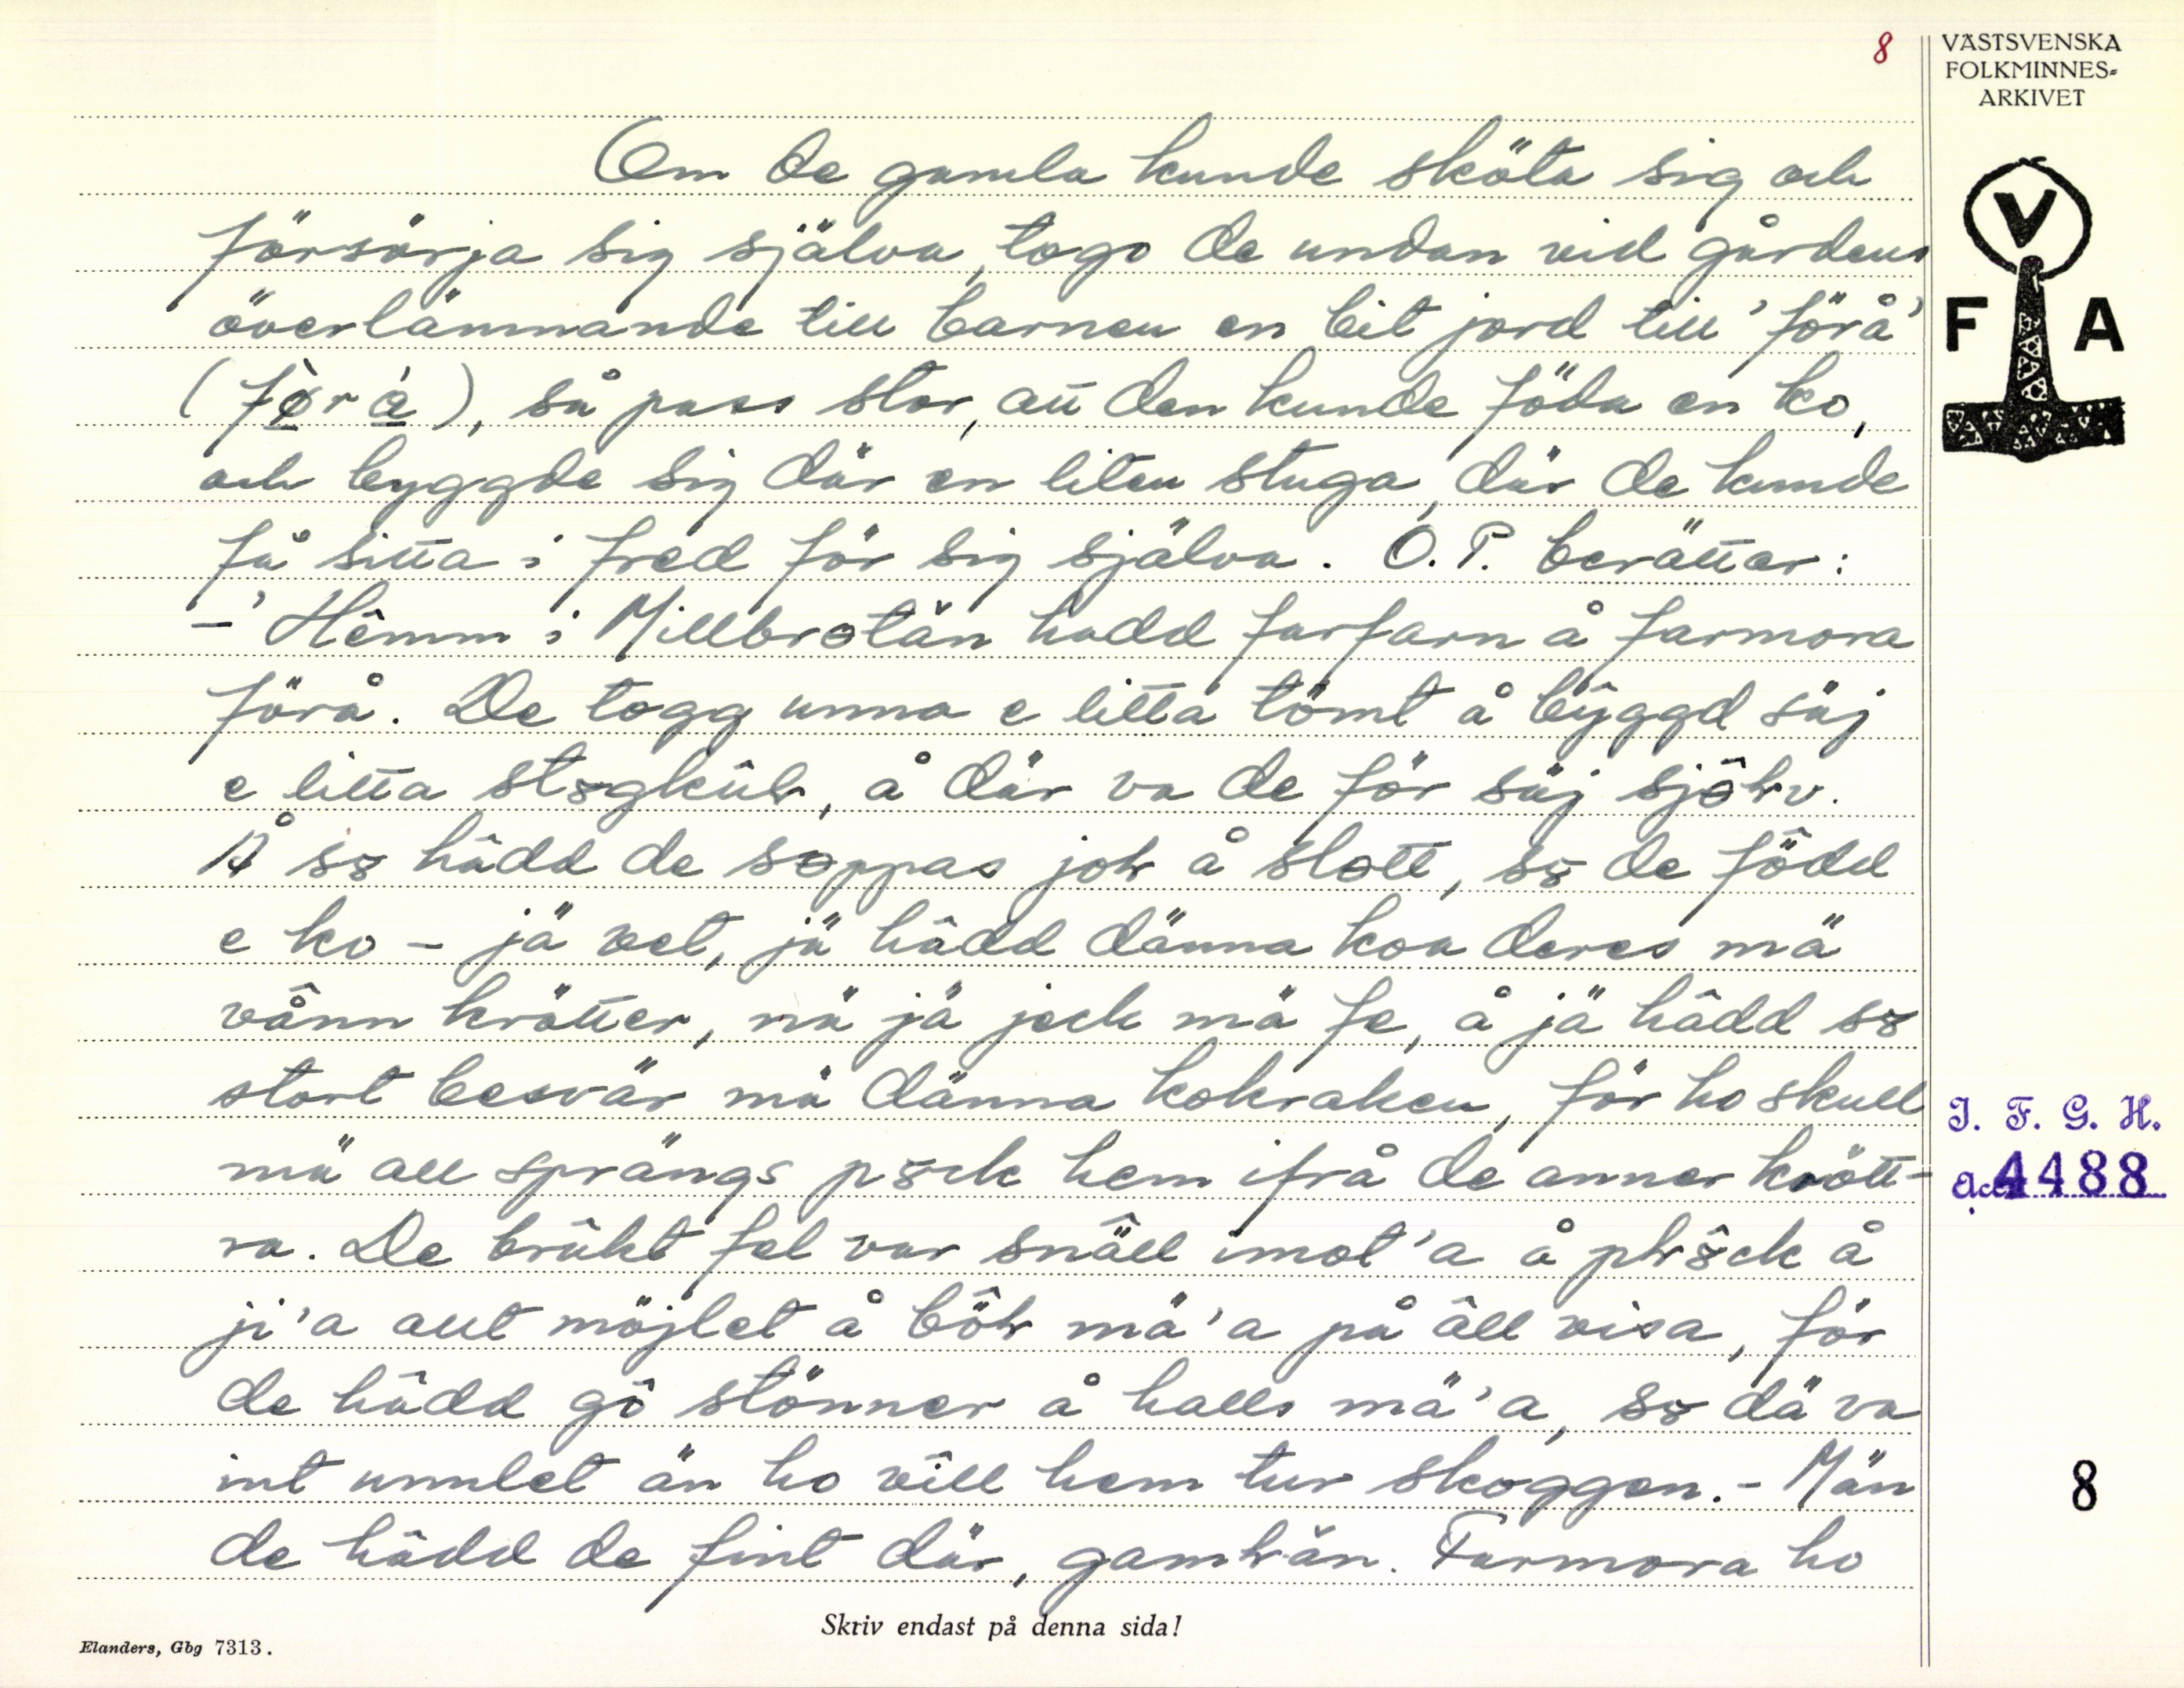 8
VÄSTSVENSKA
FOLKMINNES-
ARKIVET
V
F A
Om de gamla kunde sköta sig och
försörja sig själva, togo de undan vid gårdens
överlämnande till barnen en bit jord till 'förå'
(fø̀rå̀), så pass stor, att den kunde föda en ko,
och byggde sig där en liten stuga, där de kunde
få sitta i fred för sig själva. O.P. berättar:
-'Hêmm i Millbrotän hadd farfarn å farmora
förå. De togg unna e litta tömt å bŷggd säj
e litta där va de för säj
Å hâdd de å slott, de fôdd
e ko - jä vet, jä hâdd dänna koa deres mä
vånn krätter, nä jä jeck mä fe, å jä hâdd
stort besvär mä dänna kokraken, för ho skull
mä all sprängs hem ifrå de anner krött-
ra. De brûkt fel var snäll imot'a å å
ji'a allt möjlet å mä'a på âll visa, för
de hâdd gô stönner å halls mä'a, dä va
int unnlet än ho vill hem tur skoggen. - Män
de hâdd de fint där, Farmora ho
I. F. G. H.
Acc. 4488
8
Skriv endast på denna sida!
Elanders, Gbg 7313.